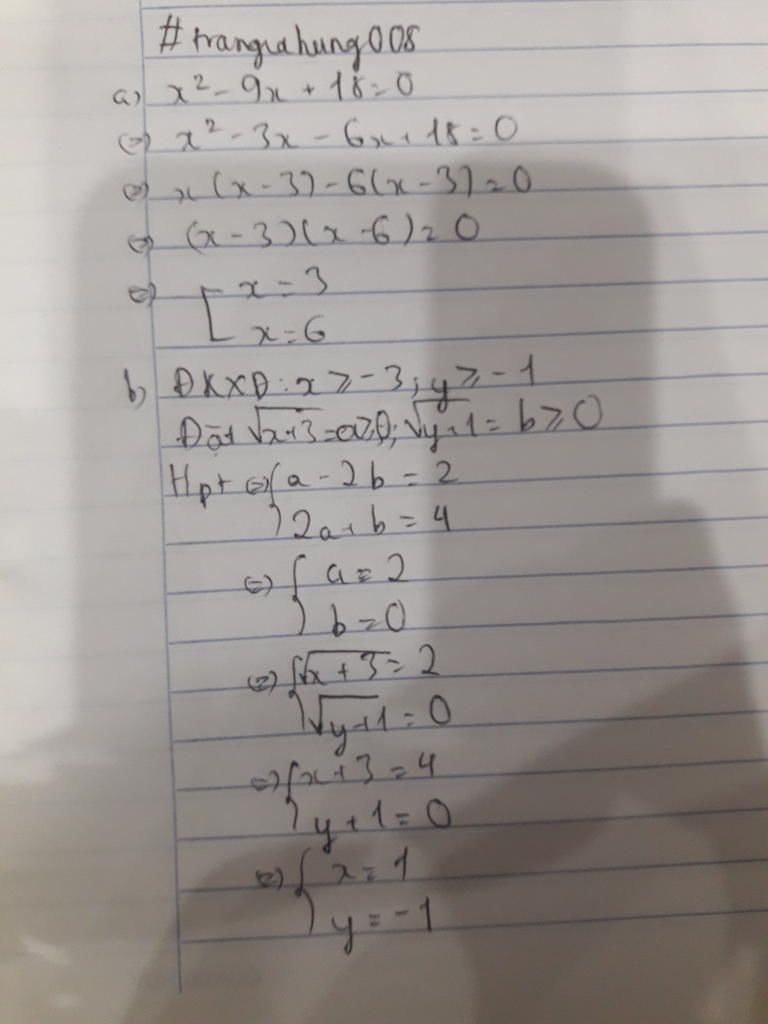 #trangiahung008
a) x² - 9x + 18 = 0
⇔ x² - 3x - 6x + 18 = 0
⇔ x(x - 3) - 6(x - 3) = 0
⇔ (x - 3)(x - 6) = 0
⇔ [ x = 3
x = 6
b) ĐKXĐ: x ≥ -3; y ≥ -1
Đặt √(x+3) = a ≥ 0; √(y+1) = b ≥ 0
Hpt ⇔ { a - 2b = 2
2a + b = 4
⇔ { a = 2
b = 0
⇔ { √(x + 3) = 2
√(y+1) = 0
⇔ { x + 3 = 4
y + 1 = 0
⇔ { x = 1
y = -1